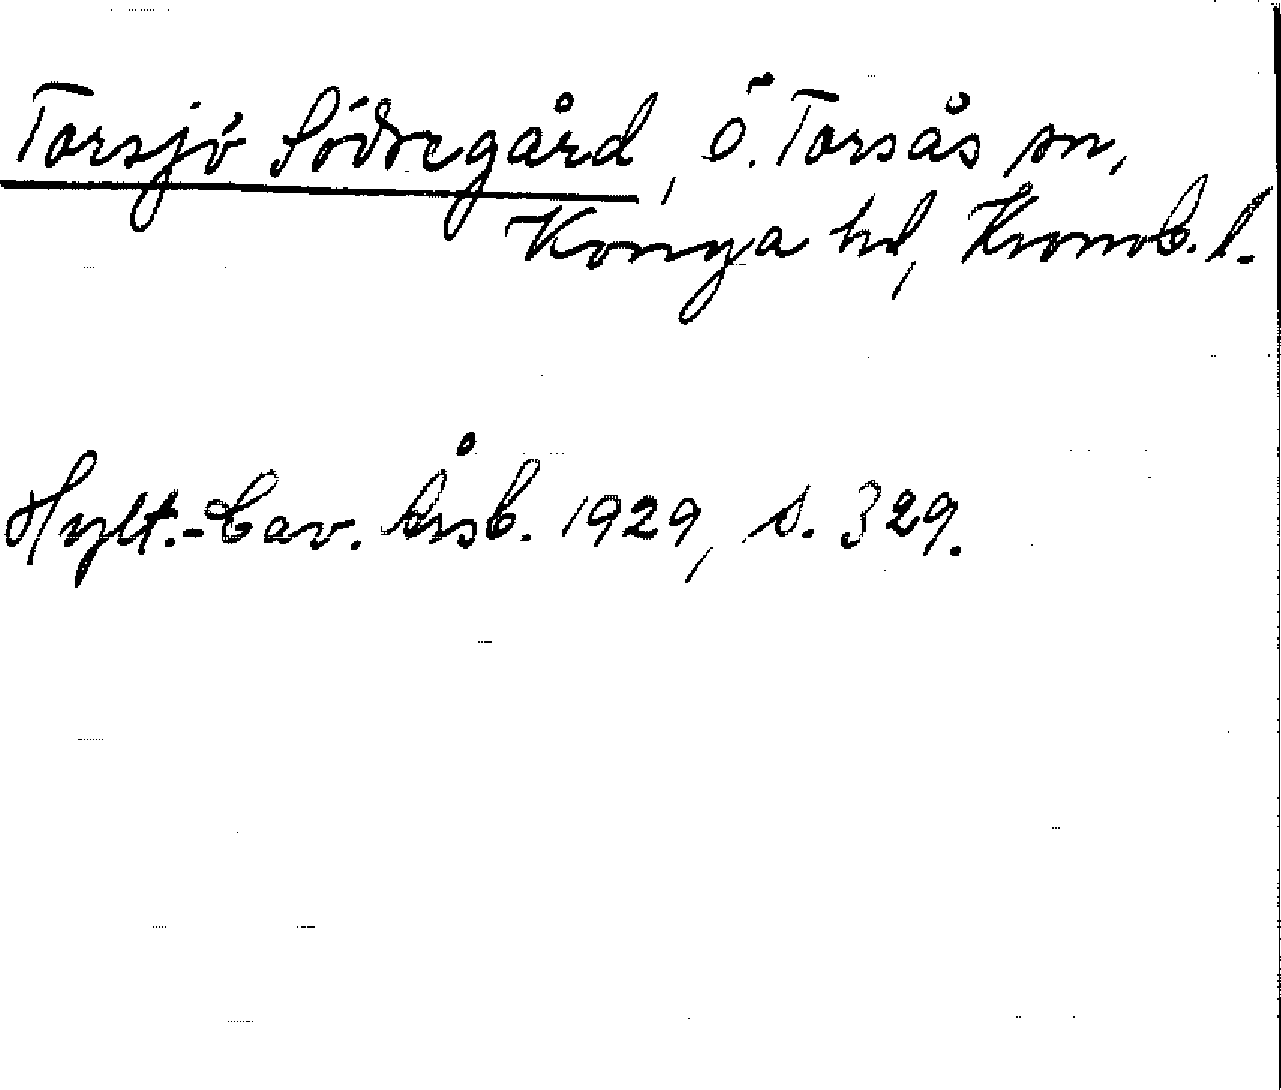 Torsjö Södregård, Ö. Torsås sn,
Konga hd, Kronob. l.
Hylt.-Cav. Årsb. 1929, s. 329.